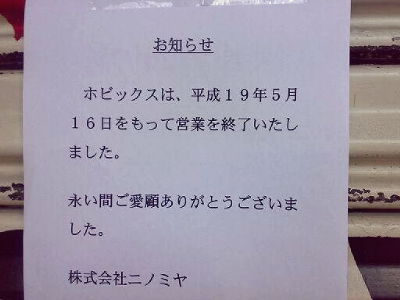 お知らせ
ホビックスは、平成１９年５月
１６日をもって営業を終了いたし
ました。
永い間ご愛顧ありがとうございま
した。
株式会社ニノミヤ